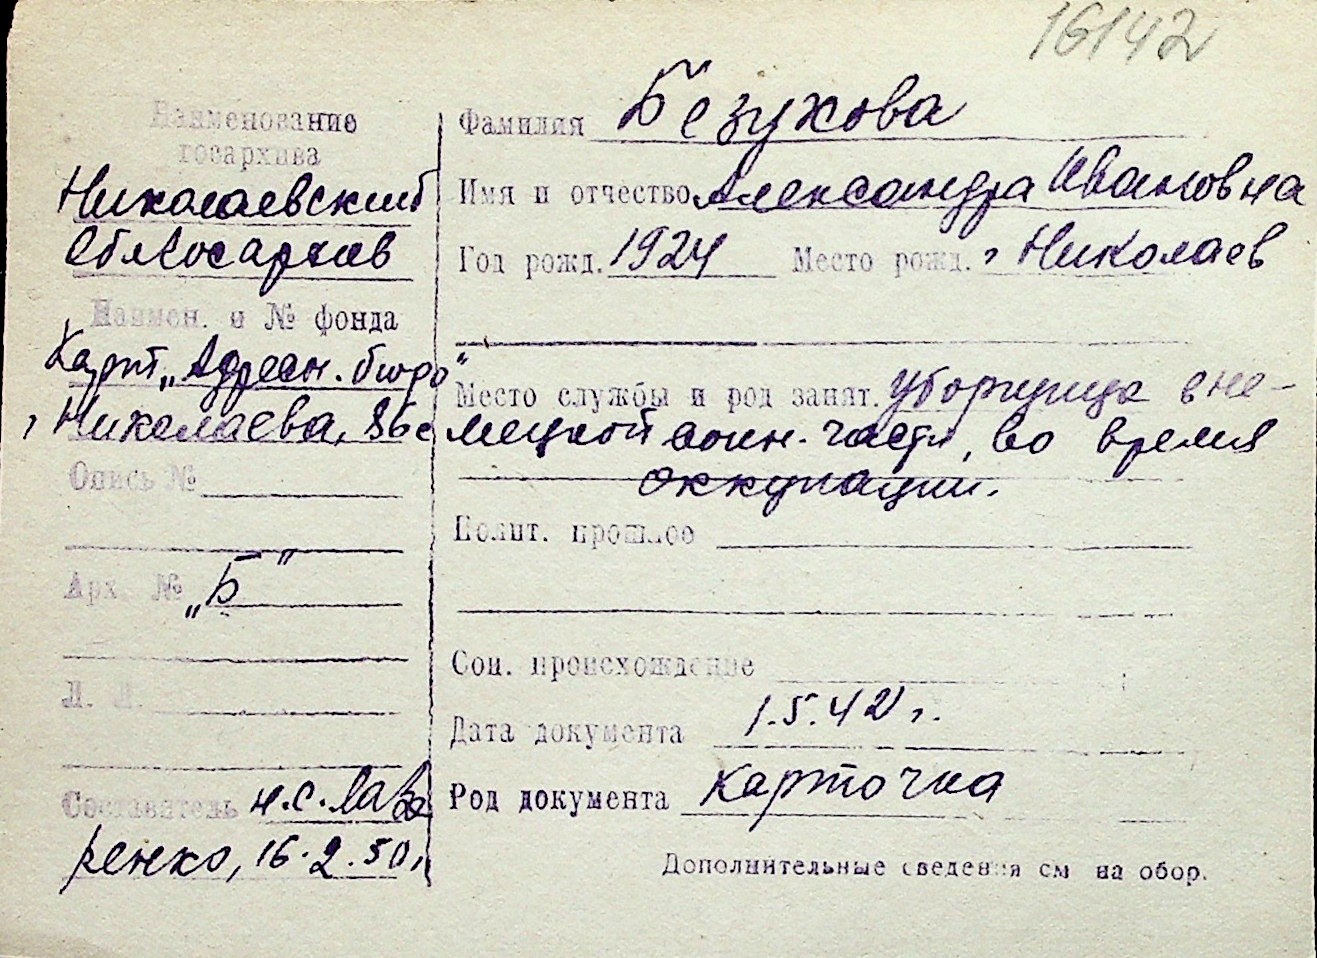 16142
Наименование
госархива
Николаевский
облгосархив
Наимен. и № фонда
Карт. „Адресн. бюро"
г Николаева,
Опись №
Арх. № „Б"
Л. Л.
Составитель Н.С. Лав
ренко, 16.2.50г
Фамилия Безухова
Имя и отчество Александра Ивановна
Год рожд. 1924 Место рожд. г Николаев
Место службы и род занят. Уборщица в не-
мецкой воин. части, во время
оккупации.
Полит. прошлое
Соц. происхождение
Дата документа 1.5.42 г.
Род документа карточка
Дополнительные сведения см на обор.